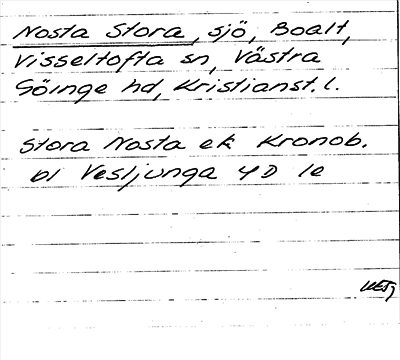 Nosta Stora, sjö, Boalt,
Visseltofta sn, Västra
Göinge hd, Kristianst. l.
Stora Nosta ek Kronob.
bl Vesljunga 4D 1e